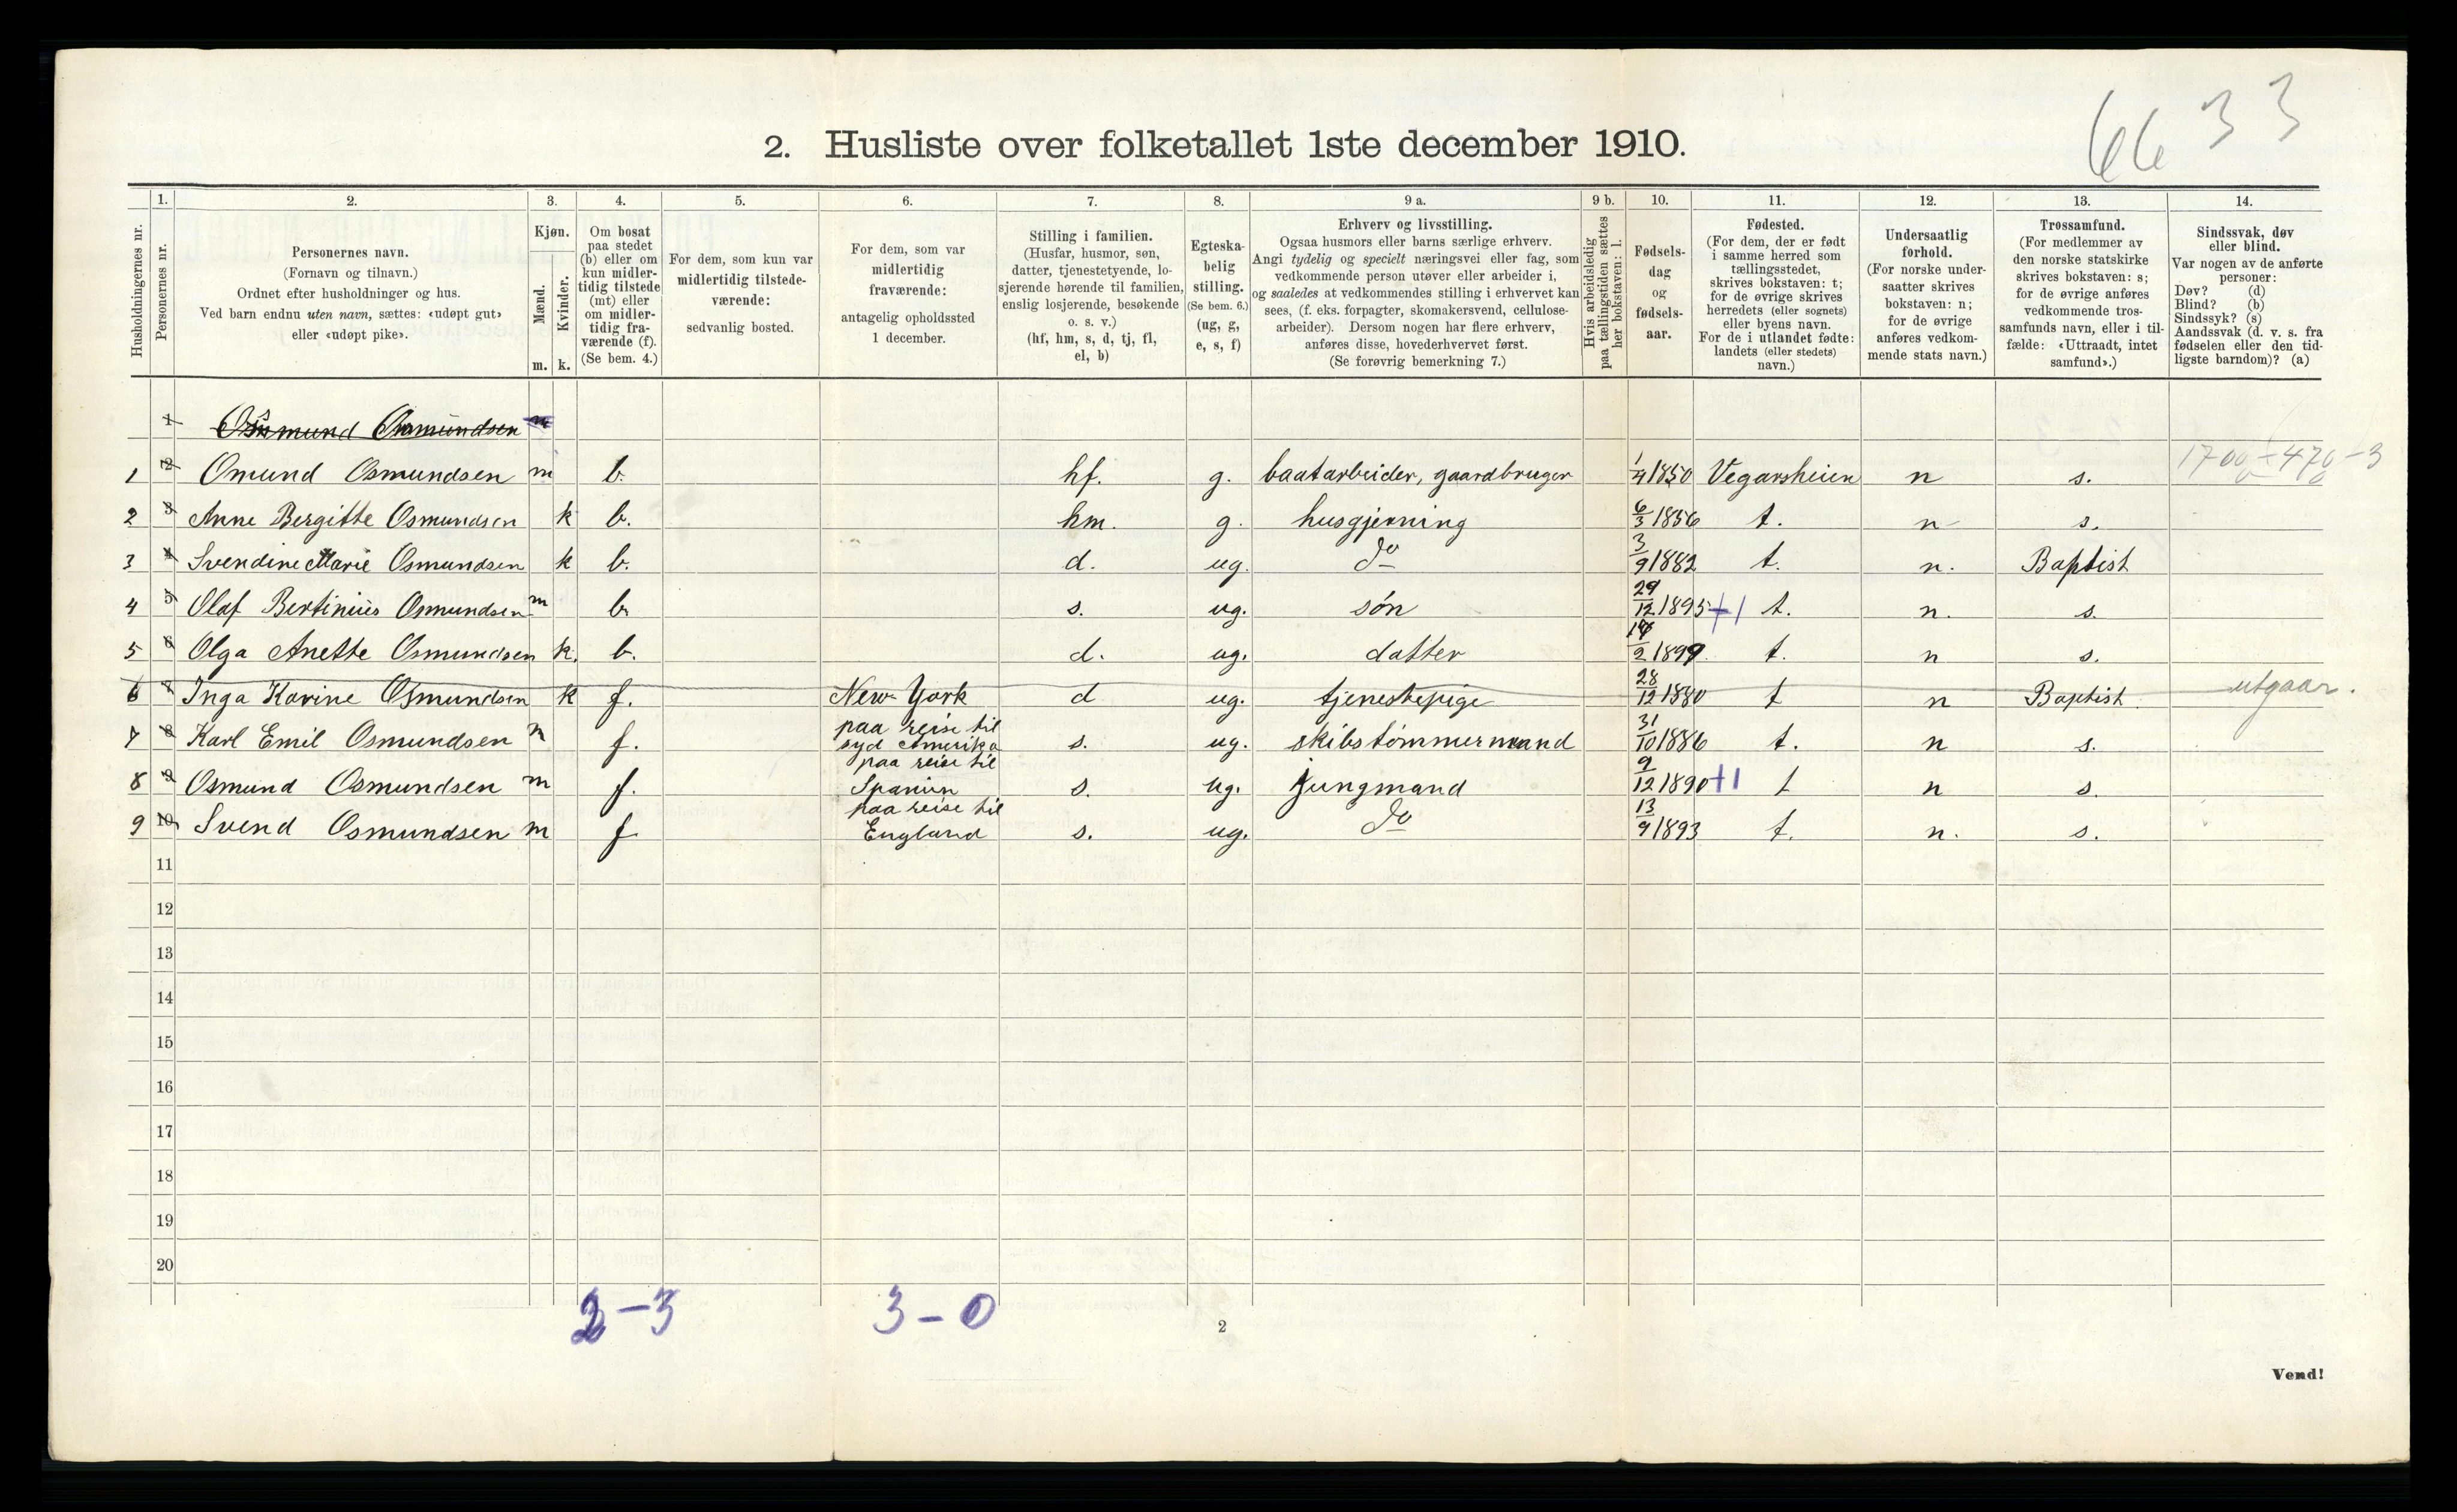 6633
2. Husliste over folketallet 1ste december 1910.
1. 2. 3. 4. 5. 6. 7. 8. 9 a. 9 b. 10. 11. 12. 13. 14.
Husholdningernes nr.
Personernes nr.
Personernes navn.
(Fornavn og tilnavn.)
Ordnet efter husholdninger og hus.
Ved barn endnu uten navn, sættes: «udøpt gut»
eller «udøpt pike».
Kjøn.
Mænd.
Kvinder.
m. k.
Om bosat
paa stedet
(b) eller om
kun midler-
tidig tilstede
(mt) eller
om midler-
tidig fra-
værende (f).
(Se bem. 4.)
For dem, som kun var
midlertidig tilstede-
værende:
sedvanlig bosted.
For dem, som var
midlertidig
fraværende:
antagelig opholdssted
1 december.
Stilling i familien.
(Husfar, husmor, søn,
datter, tjenestetyende, lo-
sjerende hørende til familien,
enslig losjerende, besøkende
o. s. v.)
(hf, hm, s, d, tj, fl,
el, b)
Egteska-
belig
stilling.
(Se bem. 6.)
(ug, g,
e, s, f)
Erhverv og livsstilling.
Ogsaa husmors eller barns særlige erhverv.
Angi tydelig og specielt næringsvei eller fag, som
vedkommende person utøver eller arbeider i,
og saaledes at vedkommendes stilling i erhvervet kan
sees, (f. eks. forpagter, skomakersvend, cellulose-
arbeider). Dersom nogen har flere erhverv,
anføres disse, hovederhvervet først.
(Se forøvrig bemerkning 7.)
Hvis arbeidsledig
paa tællingstiden sættes
her bokstaven: l.
Fødsels-
dag
og
fødsels-
aar.
Fødested.
(For dem, der er født
i samme herred som
tællingsstedet,
skrives bokstaven: t;
for de øvrige skrives
herredets (eller sognets)
eller byens navn.
For de i utlandet fødte:
landets (eller stedets)
navn.)
Undersaatlig
forhold.
(For norske under-
saatter skrives
bokstaven: n;
for de øvrige
anføres vedkom-
mende stats navn.)
Trossamfund.
(For medlemmer av
den norske statskirke
skrives bokstaven: s;
for de øvrige anføres
vedkommende tros-
samfunds navn, eller i til-
fælde: «Uttraadt, intet
samfund».)
Sindssvak, døv
eller blind.
Var nogen av de anførte
personer:
Døv? (d)
Blind? (b)
Sindssyk? (s)
Aandssvak (d. v. s. fra
fødselen eller den tid-
ligste barndom)? (a)
1 Osmund Osmundsen m
1700-470-3
1 2 Omund Osmundsen m b. hf. g. baatarbeider, gaardbruger 1/4 1850 Vegarsheien n s.
2 3 Anne Bergitte Osmundsen k b. hm. g. husgjerning 6/3 1856 t. n s.
3 4 Svendine Marie Osmundsen k b. d. ug. do 3/9 1882 t. n. Baptist
4 5 Olaf Bertinius Osmundsen m b. s. ug. søn 29/12 1895 +1 t. n. s.
5 6 Olga Anette Osmundsen k. b. d. ug. datter 14/2 1899. t. n s.
6 7 Inga Karine Osmundsen k f. New York d ug. tjenestepige 28/12 1880 t n Baptist. utgaar.
7 8 Karl Emil Osmundsen m f. paa reise til syd Amerika s. ug. skibstømmermand 31/10 1886 t. n s.
8 9 Osmund Osmundsen m f. paa reise til Spanien s. ug. jungmand 9/12 1890 +1 t n s.
9 10 Svend Osmundsen m f paa reise til England s. ug. do 13/9 1893 t. n. s.
11
12
13
14
15
16
17
18
19
20
2-3 3-0
2
Vend!